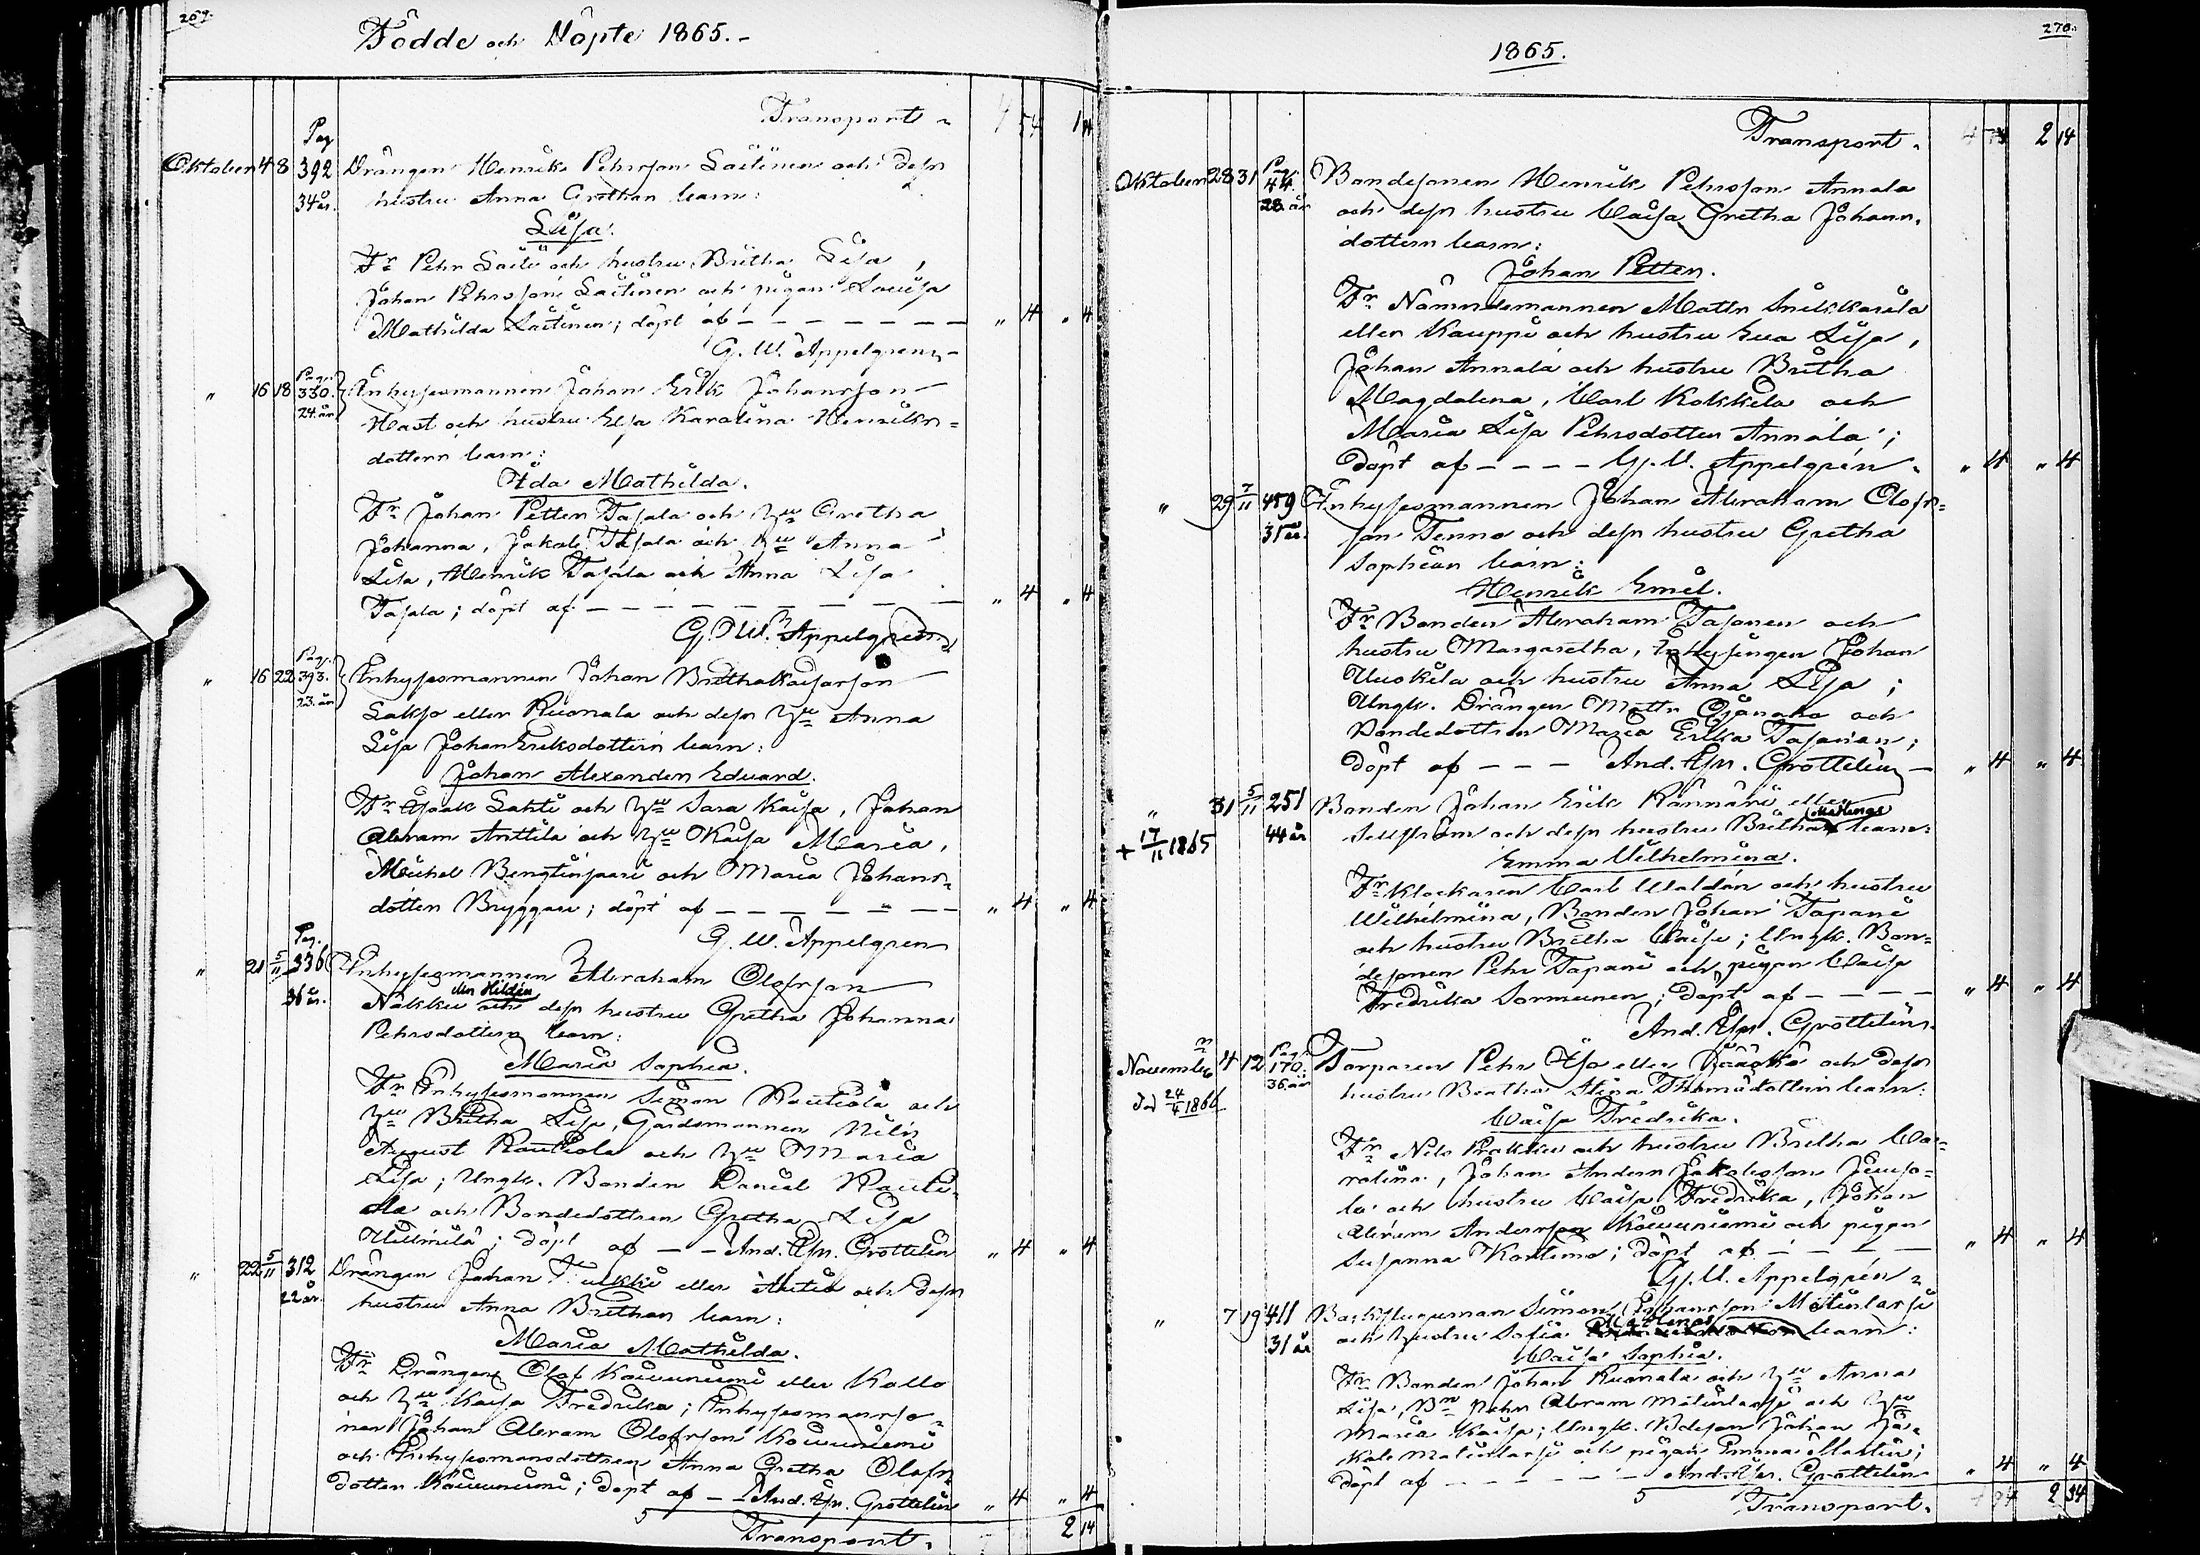 269.
Födde och Döpte 1865.-
Transport
Pag
Oktober 4 8 392 Drängen Henrik Pehrsson Laitinen och dess
34 år. hustru Anna Grethas barn:
Lisa.
Fr Pehr Laiti och hustru Britha Lisa,
Johan Pehrsson Laitinen och pigan Lovisa
Mathilda Laitinen; döpt af — — — — — — — „ 4 „ 4
G. W. Appelgren
Pag.
„ 16 18 330. Inhysesmannen Johan Erik Johansson
24. år Hast och hustru Elsa Karolina Henriks=
dotters barn:
Ida Mathilda.
Fr Johan Petter Tasala och hu Gretha
Johanna, Jakob Tasala och hu Anna
Lisa, Henrik Tasala och Anna Lisa
Tasala; döpt af — — — — — — — — — „ 4 „ 4
G. W. Appelgren
Pag.
„ 16 22 393. Inhysesmannen Johan Brithakaisasson
23. år Lakso eller Ruonala och dess hu Anna
Lisa Johan Eriksdotters barn:
Johan Alexander Eduard.
Fr Isaak Lahti och hu Sara Kaisa, Johan
Abram Anttila och hu Kaisa Maria,
Michel Bengtinpaari och Maria Johans-
dotter Bryggare; döpt af — — — — — — — „ 4 „ 4
G. W. Appelgren
Pag.
„ 21 5/11 336 Inhysesmannen Abraham Olofsson
eller Hildén
36 år. Näkku och dess hustru Gretha Johanna
Pehrsdotters barn:
Maria Sophia.
Fr Inhysesmannen Simon Rautiola och
hu Britha Lisa, Gårdsmannen Nils
August Rautiola och hu Maria
Lisa; Ungk. Bonden Daniel Rauti-
ola och Bondedottren Gretha Lisa
Ullmila; döpt af — — And. Joh. Grottelin „ 4 „ 4
„ 22 5/11 312 Drängen Johan Tuikki eller Autio och dess
22 år. hustru Anna Brithas barn:
Maria Mathilda.
Fr Drängen Olof Koivuniemi eller Kallo
och hu Kaisa Fredrika; Inhysesmansso-
nen Johan Abram Olofsson Koivuniemi
och Inhysesmansdottren Anna Gretha Olofs
dotter Koivuniemi; döpt af — And. Joh. Grottelin „ 4 „ 4
5 Transport. 2 14
270.
1865.
Transport. 2 14
Pag.
Oktober 28 31 44. Bondesonen Henrik Pehrsson Annala
28. år och dess hustru Caisa Gretha Johans-
dotters barn:
Johan Petter.
Fr Nämndemannen Matts Snikkarila
eller Kauppi och hustru Eva Lisa,
Johan Annala och hustru Britha
Magdalena, Carl Kokkila och
Maria Lisa Pehrsdotter Annala;
döpt af — — — — G. W. Appelgrén. „ 4 „ 4
„ 29 7/11 459 Inhysesmannen Johan Abraham Olofs=
31 år. son Tenno och dess hustru Gretha
Sophias barn:
Henrik Emil.
Fr Bonden Abraham Tasanen och
hustru Margaretha, Inhysingen Johan
Uuskila och hustru Anna Lisa;
Ungk. Drängen Matts Ojanaho och
Bondedottren Maria Erika Tasanen;
döpt af — — — And. Joh. Grottelin — „ 4 „ 4
„ 31 5/11 251 Bonden Johan Erik Rännäri eller
Mathenas
+ 17/11 1865 44 år och dess hustru Britha barn:
Emma Vilhelmina.
Fr Klockaren Carl Waldén och hustru
Wilhelmina, Bonden Johan Tapani
och hustru Britha Caisa; Ungk. Bon=
desonen Pehr Tapani och pigan Caisa
Fredrika Sormunen; döpt af — — — — „ 4 „ 4
And. Joh. Grottelin
Pag.
November 4 12 170. Torparen Pehr eller och dess
36. år
död 24/4 1866 hustru Beatha Stina Thomasdotters barn:
Caisa Fredrika.
Fr Nils Prakku och hustru Britha Ca-
rolina, Johan Anders Jakobsson
la och hustru Caisa Fredrika, Johan
Abram Andersson Koivuniemi och pigan
Susanna Kontimo; döpt af — — — — „ 4 „ 4
G. W. Appelgrén
„ 7 19 411 Simon Johansson Matinlassi
31 år och hustru Sofia barn:
Caisa Sophia.
Fr Bonden Johan Ruonala och hu Anna
Lisa, Bn Pehr Abram Matinlassi och hu
Maria Kaisa; Ungk. Bdeson Johan Ja-
kob Matinlassi och pigan Emma Martin;
döpt af — — — — And. Joh. Grottelin „ 4 „ 4
5 Transport. 2 34